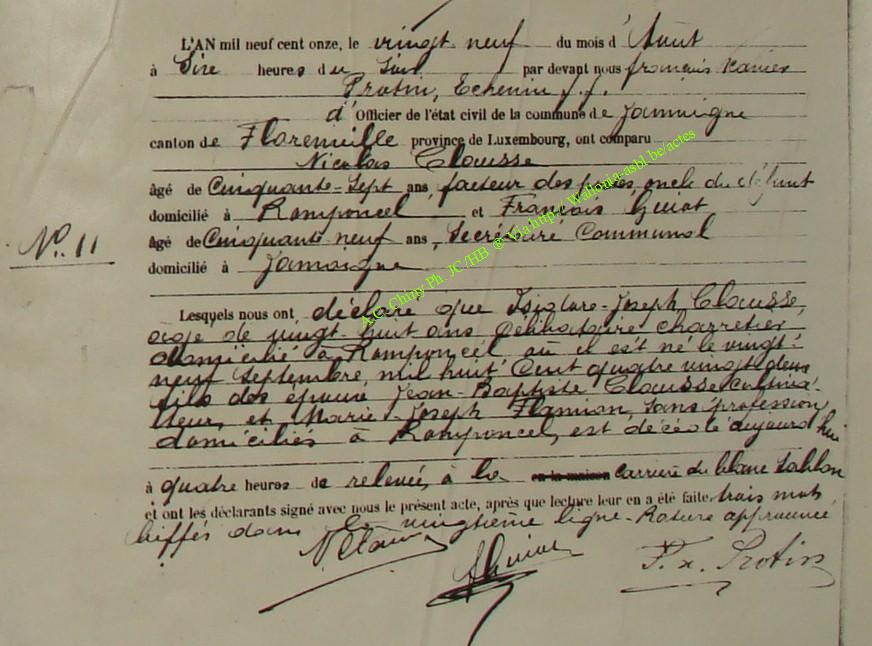 L'AN mil neuf cent onze, le vingt neuf du mois d'Août
à Sixe heures du soir par devant nous françois Xavier
Protin, Echevin f.f.
d' Officier de l'état civil de la commune de Jamoigne
canton de Florenville province de Luxembourg, ont comparu
Nicolas Clausse
âgé de Cinquante-Sept ans, facteur des postes, oncle du défunt
domicilié à Romponcel et François Guiot
No. 11
âgé de Cinquante neuf ans, Secrétaire Communal
domicilié à Jamoigne
Lesquels nous ont déclaré que Isidore-Joseph Clausse,
âgé de vingt-huit ans Célibataire charretier
domicilié à Romponcel où il est né le vingt-
neuf Septembre, mil huit Cent quatre vingt deux
fils des époux Jean-Baptiste Clausse Cultiva-
teur, et Marie-Joseph Flamion, Sans profession
domiciliés à Romponcel, est décédé aujourd'hui
à quatre heures de relevée, à la en la maison carrière du blanc Sablon
et ont les déclarants signé avec nous le présent acte, après que lecture leur en a été faite, trois mots
biffés dans la vingtième ligne-Rature approuvée
N Clausse
F Guiot
F. x. Protin
A.C. Chiny Ph. JC/HB @ Via http://Wallonia-asbl.be/actes